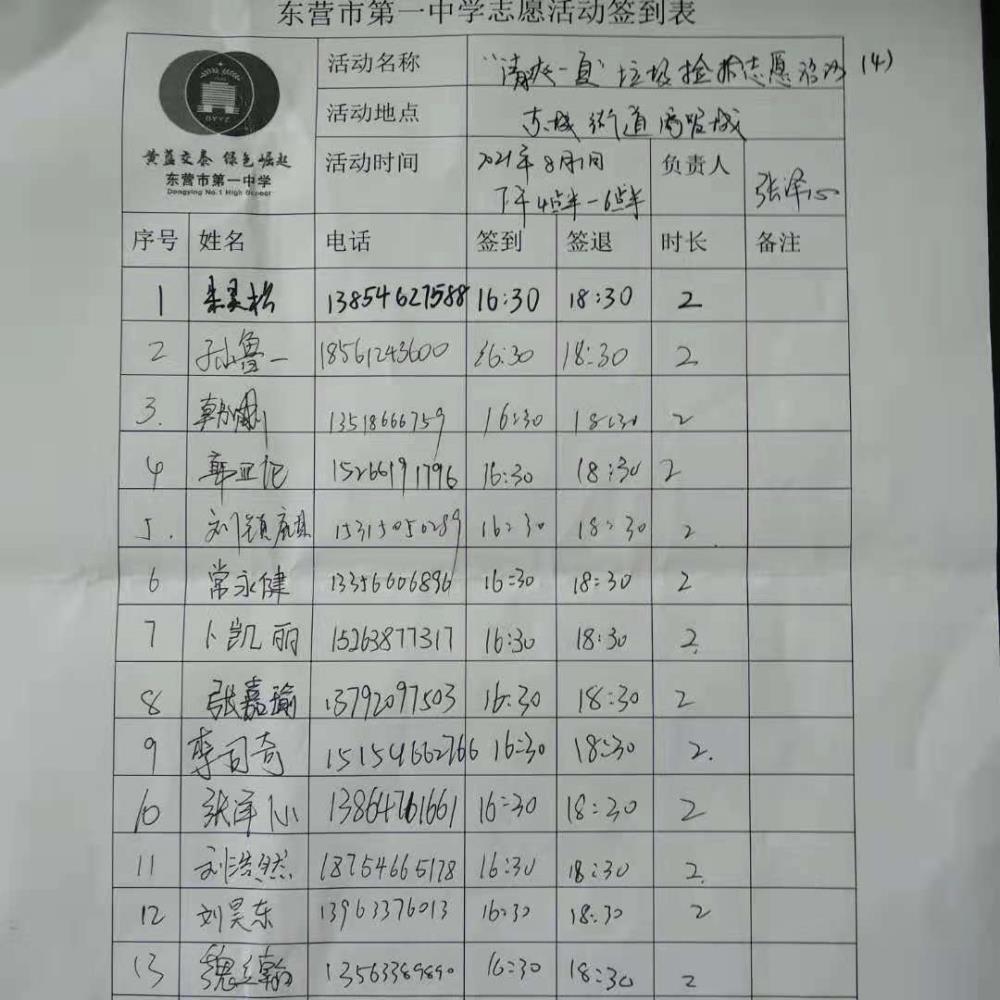 东营市第一中学志愿活动签到表
活动名称 “清爽一夏”垃圾捡拾志愿活动 (4)
活动地点 东城街道
活动时间 2021年8月1日 负责人 张泽心
下午4点半-6点半
黄蓝交泰 绿色崛起
东营市第一中学
Dongying No.1 High School
序号 姓名 电话 签到 签退 时长 备注
1 13854627588 16:30 18:30 2
2 孙鲁一 18561243600 16:30 18:30 2
3. 13518666759 16:30 18:30 2
4 15266191796 16:30 18:30 2
5. 刘镇麒 15315050289 16:30 18:30 2
6 常永健 13356606896 16:30 18:30 2
7 卜凯丽 15263877317 16:30 18:30 2
8 张嘉瑜 13792097503 16:30 18:30 2
9 李司奇 15154662766 16:30 18:30 2.
10 张泽心 13864761661 16:30 18:30 2
11 刘浩然 18754665178 16:30 18:30 2
12 刘昊东 13963376013 16:30 18:30 2
13 13563389890 16:30 18:30 2